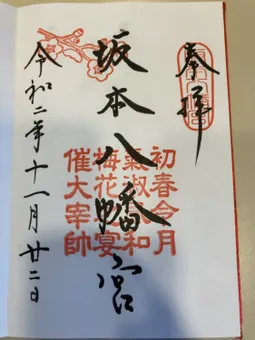 奉拝
坂本八幡宮
初春令月
氣淑風和
梅花宴
催大宰帥
令和二年十一月廿二日